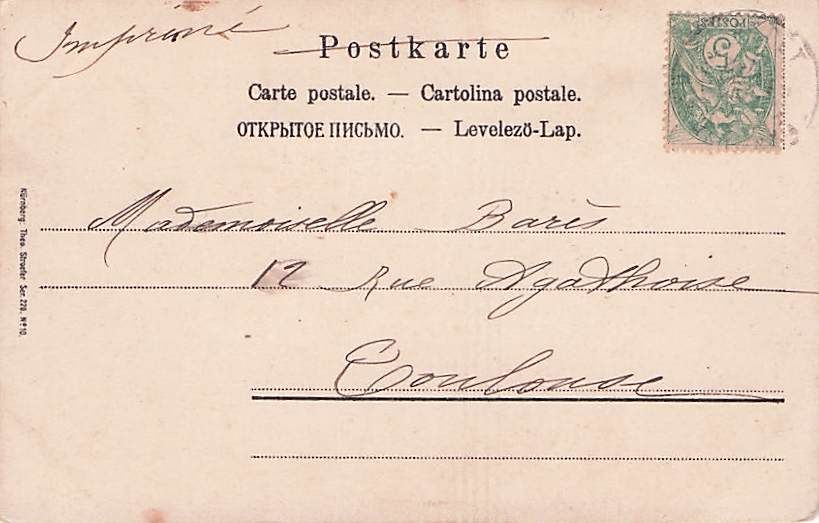 Imprimé
Postkarte
Carte postale. — Cartolina postale.
ОТКРЫТОЕ ПИСЬМО. — Levelező-Lap.
Mademoiselle Barès
12 Rue Agathoise
Toulouse
Nürnberg. Theo. Stroefer Ser. 220. Nº 10.
POSTES
5